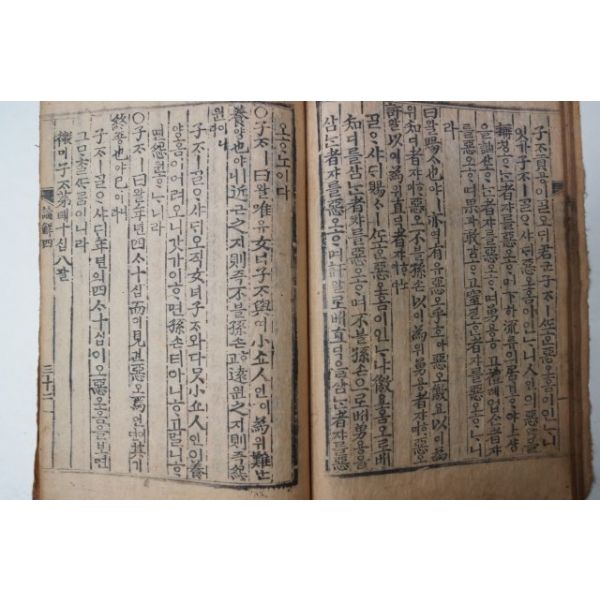 子ᄌᆞ貢공이ᄀᆞᆯ오ᄃᆡ君군子ᄌᆞㅣᄯᅩ惡오홈이인ᄂᆞ니
잇가子ᄌᆞㅣᄀᆞᆯᄋᆞ샤ᄃᆡ惡오홈이인ᄂᆞ니人인의惡오를
稱칭ᄒᆞᄂᆞᆫ者쟈를惡오ᄒᆞ며下하流류의居거ᄒᆞ야上샹
을訕산ᄒᆞᄂᆞᆫ者쟈를惡오ᄒᆞ며勇용ᄒᆞ고禮례업슨者쟈
를惡오ᄒᆞ며果과敢감ᄒᆞ고窒딜ᄒᆞᆫ者쟈를惡오ᄒᆞᄂᆞ니
라
曰왈賜ᄉᆞ也야ㅣ亦역有유惡오乎호아惡오徼요以이爲
위知디者쟈ᄒᆞ며惡오不블孫손以이爲위勇용者쟈ᄒᆞ며惡오
訐알以이爲위直딕者쟈
ᄀᆞᆯᄋᆞ샤ᄃᆡ賜ᄉᆞㅣᄯᅩ惡오홈이인ᄂᆞ냐徼요홈오로ᄡᅥ
知디를삼ᄂᆞᆫ者쟈를惡오ᄒᆞ며不블孫손으로ᄡᅥ勇용을
삼ᄂᆞᆫ者쟈를惡오ᄒᆞ며訐알로ᄡᅥ直딕을삼ᄂᆞᆫ者쟈를惡
오ᄒᆞ노이다
○子ᄌᆞㅣ曰왈唯유女녀子ᄌᆞ與여小쇼人인이爲위難난
養양也야ㅣ니近근之지則즉不블孫손ᄒᆞ고遠원之지則즉怨
원이니라
子ᄌᆞㅣᄀᆞᆯᄋᆞ샤ᄃᆡ오직女녀子ᄌᆞ와다ᄆᆞᆺ小쇼人인이養
양홈이어려오니갓가이ᄒᆞ면孫손티아니ᄒᆞ고멀리ᄒᆞ
면怨원ᄒᆞᄂᆞ니라
○子ᄌᆞㅣ曰왈年년四ᄉᆞ十십而이見견惡오焉언이면其기
終죵也야已이니라
子ᄌᆞㅣᄀᆞᆯᄋᆞ샤ᄃᆡ年년이四ᄉᆞ十십이오惡오홈을보면
그ᄆᆞᄎᆞᆯᄯᆞᄅᆞᆷ이니라
微미子ᄌᆞ第뎨十십八팔
論解四
三十二